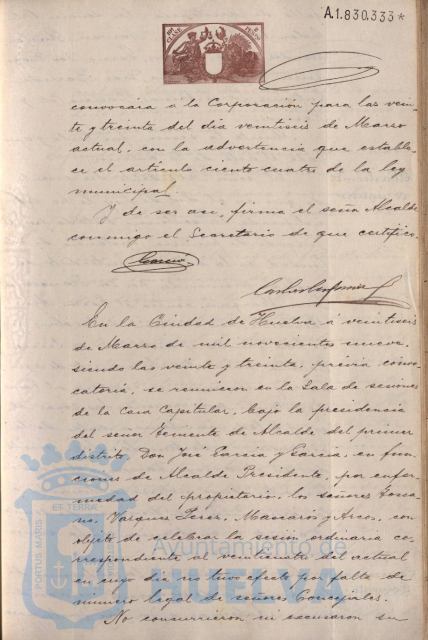 A.1.830.333*
convocára á la Corporación para las vein-
te y treinta del dia veintiseis de Marzo
actual, con la advertencia que estable-
ce el artículo ciento cuatro de la ley
municipal.
Y de ser asi, firma el señor Alcalde
conmigo el Secretario de que certifico.
En la Ciudad de Huelva á veintiseis
de Marzo de mil novecientos nueve,
siendo las veinte y treinta, prévia convo-
catoria, se reunieron en la Sala de sesiones
de la Casa Capitular, bajo la presidencia
del señor Teniente de Alcalde del primer
distrito, Don José García y García, en fun-
ciones de Alcalde Presidente, por enfer-
medad del propietario, los señores
Vazquez Mascarós y Arcos, con
objeto de celebrar la sesión ordinaria co-
rrespondiente al veinticuatro del actual
en cuyo dia no tuvo efecto por falta de
número legal de señores Concejales.
No concurrieron ni escusaron su
PORTUS MARIS ET TERRAE
Ayuntamiento de
HUELVA